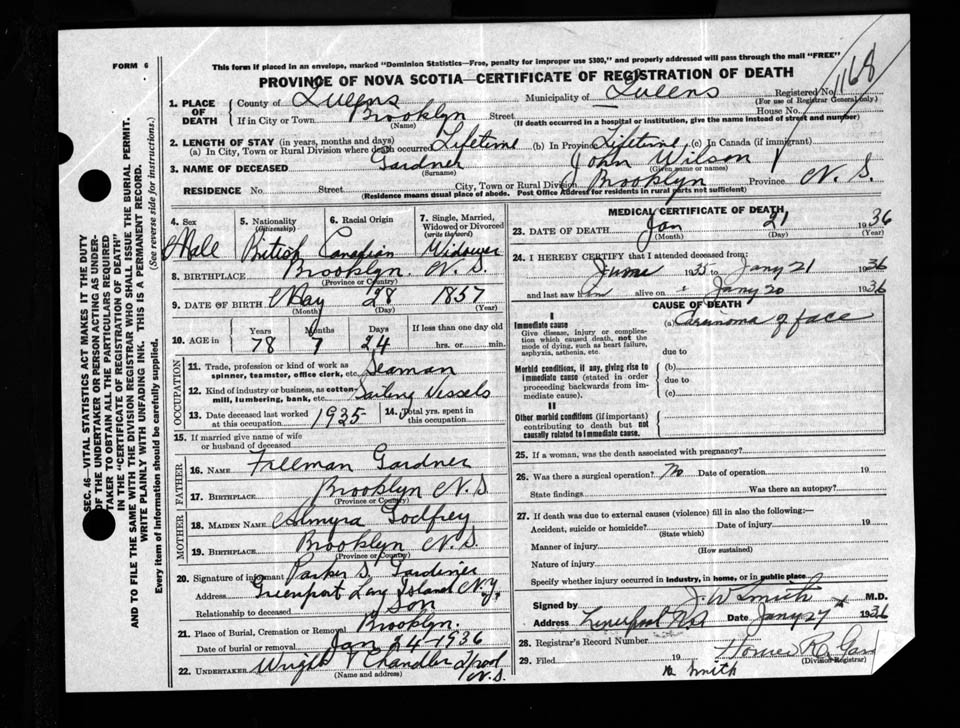 FORM 6
This form if placed in an envelope, marked "Dominion Statistics—Free, penalty for improper use $300," and properly addressed will pass through the mail "FREE"
PROVINCE OF NOVA SCOTIA—CERTIFICATE OF REGISTRATION OF DEATH
1168
1. PLACE OF DEATH
County of Queens Municipality of Queens Registered No.
(For use of Registrar General only)
If in City or Town Brooklyn Street House No.
(Name) (If death occurred in a hospital or institution, give the name instead of street and number)
2. LENGTH OF STAY (in years, months and days)
(a) In City, Town or Rural Division where death occurred Lifetime (b) In Province Lifetime (c) In Canada (if immigrant)
3. NAME OF DECEASED Gardner John Wilson
(Surname) (Given name or names)
RESIDENCE No. Street City, Town or Rural Division Brooklyn Province N. S.
(Residence means usual place of abode. Post Office Address for residents in rural parts not sufficient)
4. Sex Male
5. Nationality (Citizenship) British
6. Racial Origin Canadian
7. Single, Married, Widowed or Divorced (write the word) Widower
8. BIRTHPLACE Brooklyn. N. S.
(Province or Country)
9. DATE OF BIRTH May 28 1857
(Month) (Day) (Year)
10. AGE in Years Months Days If less than one day old
78 7 24 hrs. or min.
OCCUPATION
11. Trade, profession or kind of work as spinner, teamster, office clerk, etc. Seaman
12. Kind of industry or business, as cotton-mill, lumbering, bank, etc. Sailing Vessels
13. Date deceased last worked at this occupation 1935
14. Total yrs. spent in this occupation
15. If married give name of wife or husband of deceased
FATHER
16. NAME Freeman Gardner
17. BIRTHPLACE Brooklyn N. S.
(Province or Country)
MOTHER
18. MAIDEN NAME Almyra Godfrey
19. BIRTHPLACE Brooklyn N. S.
(Province or Country)
20. Signature of informant Parker S. Gardener
Address Greenport Long Island N.Y.
Relationship to deceased Son
21. Place of Burial, Cremation or Removal Brooklyn.
Date of burial or removal Jan 24 1936
22. UNDERTAKER Wright & Chandler L'pool N. S.
(Name and address)
MEDICAL CERTIFICATE OF DEATH
23. DATE OF DEATH Jan 21 1936
(Month) (Day) (Year)
24. I HEREBY CERTIFY that I attended deceased from
June 1935 to Jany 21 1936
and last saw him alive on Jany 20 1936
CAUSE OF DEATH
I
Immediate cause (a) Carcinoma of face
Give disease, injury or complication which caused death, not the mode of dying, such as heart failure, asphyxia, asthenia, etc.
due to
Morbid conditions, if any, giving rise to immediate cause (stated in order proceeding backwards from immediate cause).
(b)
due to
(c)
II
Other morbid conditions (if important) contributing to death but not causally related to immediate cause.
25. If a woman, was the death associated with pregnancy?
26. Was there a surgical operation? No Date of operation 19
State findings Was there an autopsy?
27. If death was due to external causes (violence) fill in also the following:—
Accident, suicide or homicide? Date of injury 19
(State which)
Manner of injury
(How sustained)
Nature of injury
Specify whether injury occurred in industry, in home, or in public place
Signed by J. W Smith M.D.
Address Liverpool N.S Date Jany 27 1936
28. Registrar's Record Number
29. Filed 19 Homer R. Gar
(Division Registrar)
Smith
SEC. 46—VITAL STATISTICS ACT MAKES IT THE DUTY
OF THE UNDERTAKER OR PERSON ACTING AS UNDER-
TAKER TO OBTAIN ALL THE PARTICULARS REQUIRED
IN THE "CERTIFICATE OF REGISTRATION OF DEATH"
AND TO FILE THE SAME WITH THE DIVISION REGISTRAR WHO SHALL ISSUE THE BURIAL PERMIT.
WRITE PLAINLY WITH UNFADING INK. THIS IS A PERMANENT RECORD.
Every item of information should be carefully supplied. (See reverse side for instructions.)